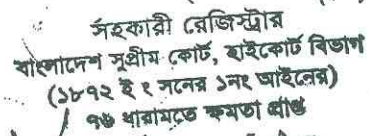 সহকারী রেজিস্ট্রার
বাংলাদেশ সুপ্রীম কোর্ট, হাইকোর্ট বিভাগ
(১৮৭২ ই ১ সনের ১নং আইনের)
৭৬ ধারামতে ক্ষমতা প্রাপ্ত